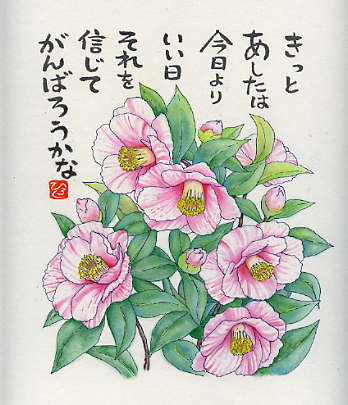 きっと
あしたは
今日より
いい日
それを
信じて
がんばろうかな